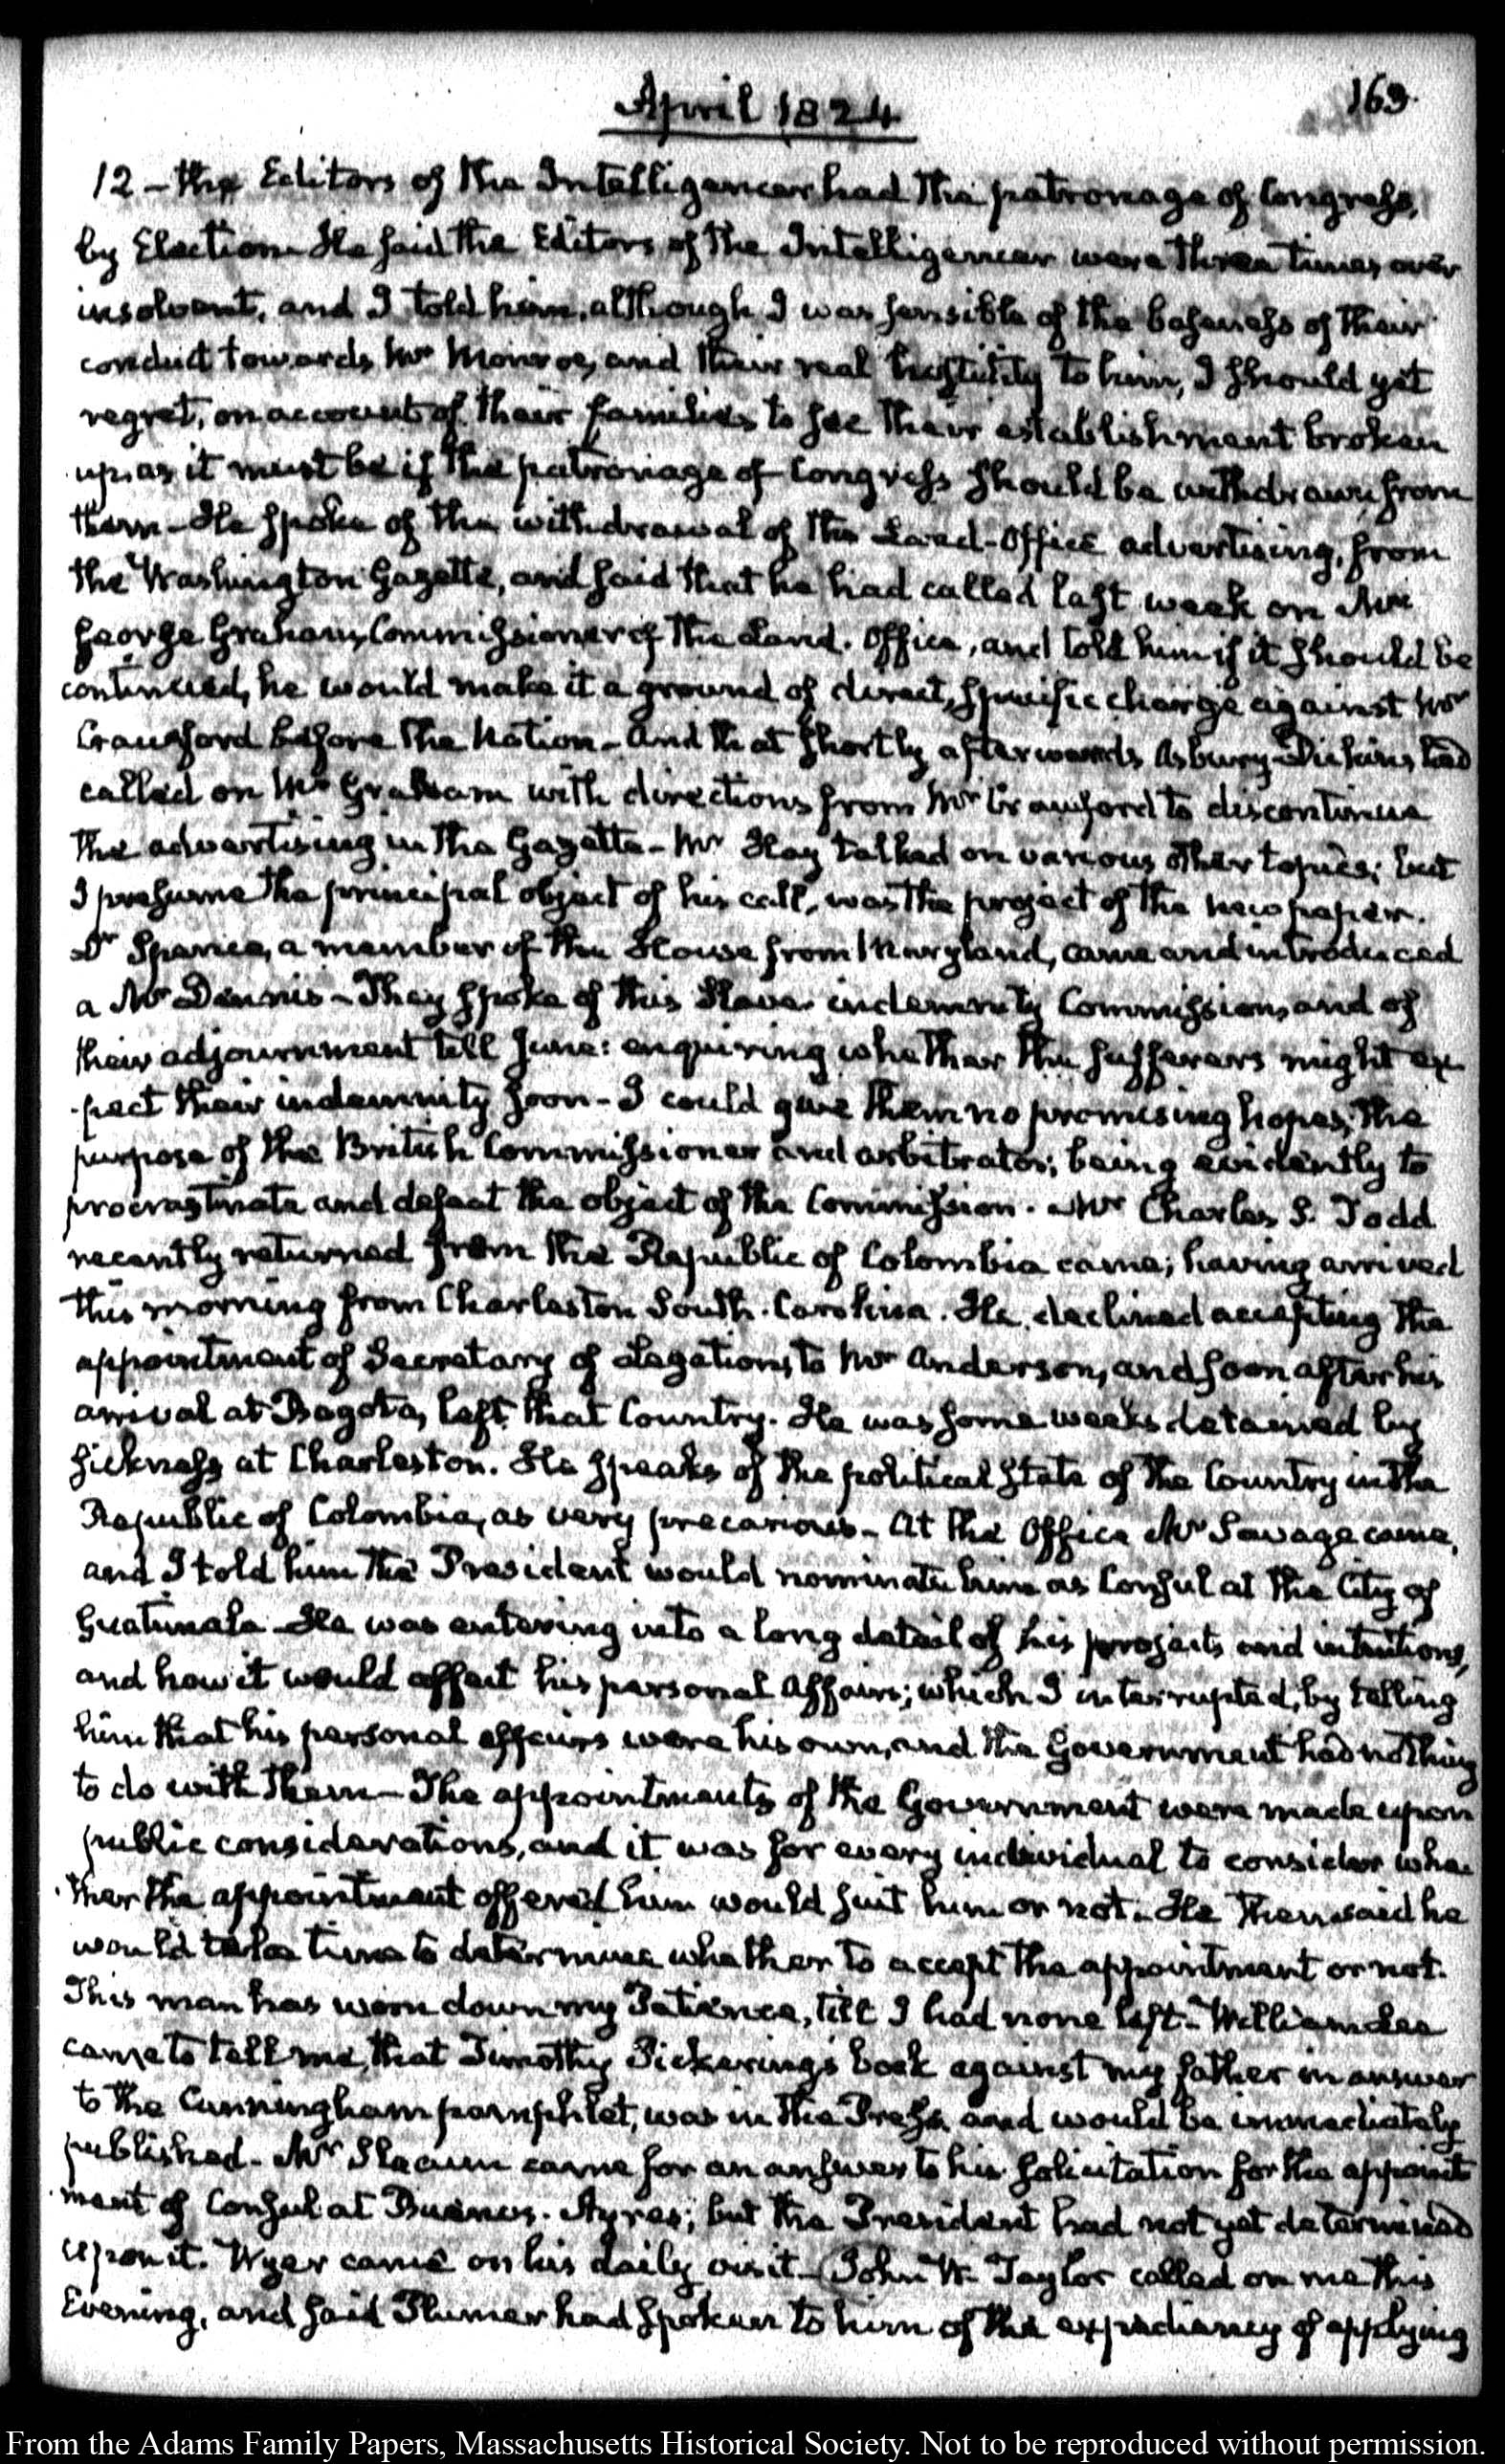 April 1824
163
12 – the Editors of the Intelligencer had the patronage of Congress,
by Election. He said the Editors of the Intelligencer were three times over
insolvent, and I told him, although I was sensible of the baseness of their
conduct towards Mr Monroe, and their real hostility to him, I should yet
regret, on account of their families to see their establishment broken
up, as it must be if the patronage of Congress should be withdrawn from
them – He spoke of the withdrawal of the Land-Office advertising, from
the Washington Gazette, and said that he had called last week on Mr
George Graham, Commissioner of the Land-Office, and told him if it should be
continued, he would make it a ground of direct, specific charge against Mr
Crawford before the Nation – And that shortly afterwards Asbury Dickins had
called on Mr Graham with directions from Mr Crawford to discontinue
the advertising in the Gazette – Mr Hay talked on various other topics; but
I presume the principal object of his call, was the project of the newspaper.
Dr Spence, a member of the House from Maryland, came and introduced
a Mr Dennis – They spoke of this Slave indemnity Commission, and of
their adjournment till June: enquiring whether the sufferers might ex-
-pect their indemnity soon – I could give them no promising hopes; the
purpose of the British Commissioner and arbitrator; being evidently to
procrastinate and defeat the object of the Commission. Mr Charles S. Todd
recently returned from the Republic of Colombia came; having arrived
this morning from Charleston South-Carolina. He declined accepting the
appointment of Secretary of Legation, to Mr Anderson, and soon after his
arrival at Bogota, left that Country. He was some weeks detained by
sickness at Charleston. He speaks of the political state of the Country in the
Republic of Colombia, as very precarious – At the Office Mr Savage came,
and I told him the President would nominate him as Consul at the City of
Guatimala. He was entering into a long detail of his projects and intentions,
and how it would affect his personal Affairs; which I interrupted, by telling
him that his personal affairs were his own, and the Government had nothing
to do with them – The appointments of the Government were made upon
public considerations, and it was for every individual to consider whe-
-ther the appointment offered him would suit him or not. He then said he
would take time to determine whether to accept the appointment or not.
This man has worn down my Patience, till I had none left – William Lee
came to tell me, that Timothy Pickering's book against my father in answer
to the Cunningham pamphlet, was in the Press, and would be immediately
published – Mr Slacum came for an answer to his solicitation for the appoint
-ment of Consul at Buenos-Ayres; but the President had not yet determined
upon it. Wyer came on his daily visit – John W. Taylor called on me this
Evening, and said Plumer had spoken to him of the expediency of applying
From the Adams Family Papers, Massachusetts Historical Society. Not to be reproduced without permission.